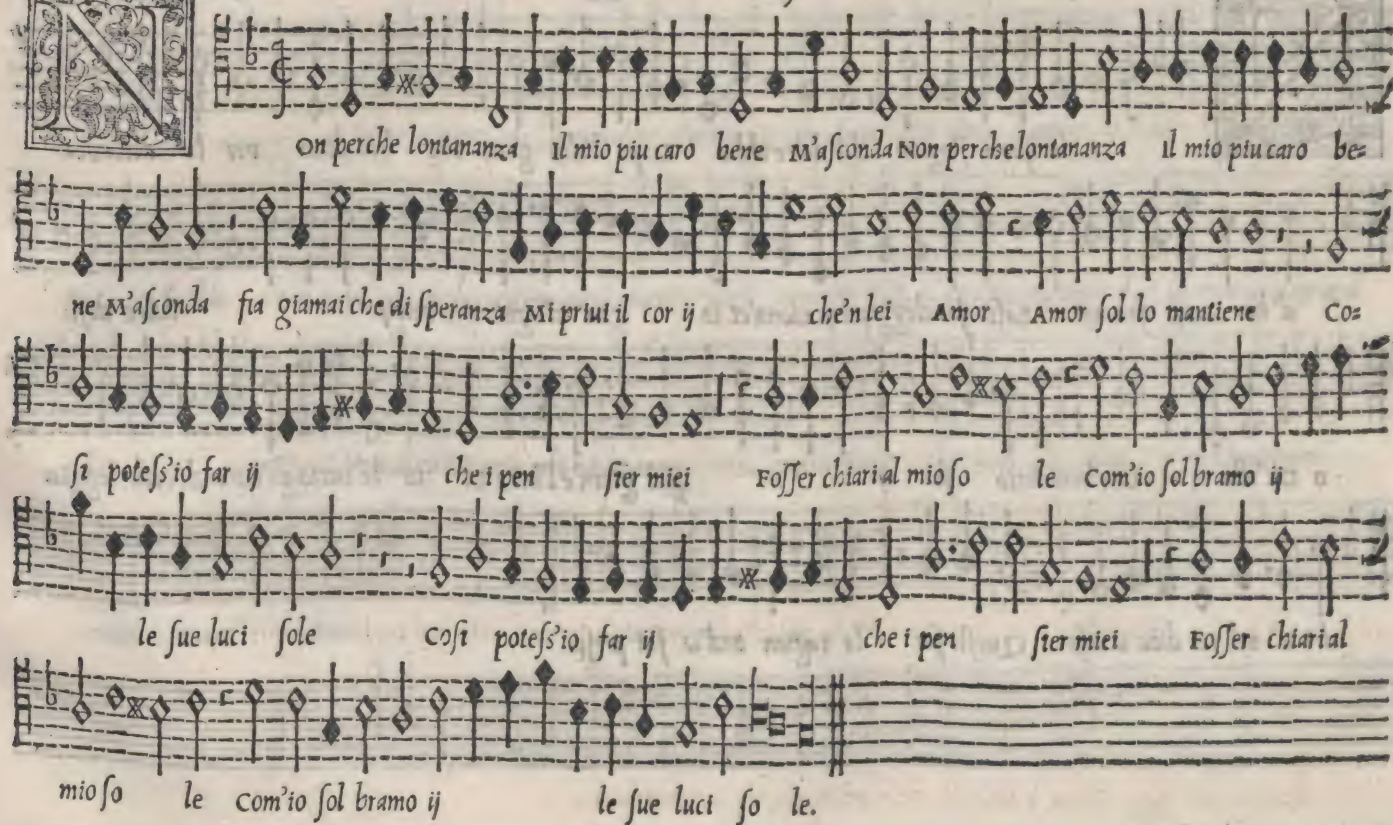 NOn perche lontananza Il mio piu caro bene M'asconda Non perche lontananza Il mio piu caro be=
ne M'asconda fia giamai che di speranza Mi priui il cor ij che'n lei Amor Amor sol lo mantiene Co=
si potess'io far ij che i pen sier miei Fosser chiari al mio so le Com'io sol bramo ij
le sue luci sole Cosi potess'io far ij che i pen sier miei Fosser chiari al
mio so le Com'io sol bramo ij le sue luci so le.